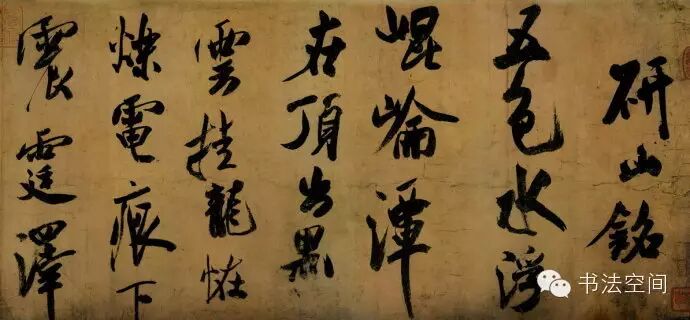 研山銘
五色水浮
崐崘潭
在頂出黑
雲挂龍恠
爍電痕下
震霆澤
书法空间